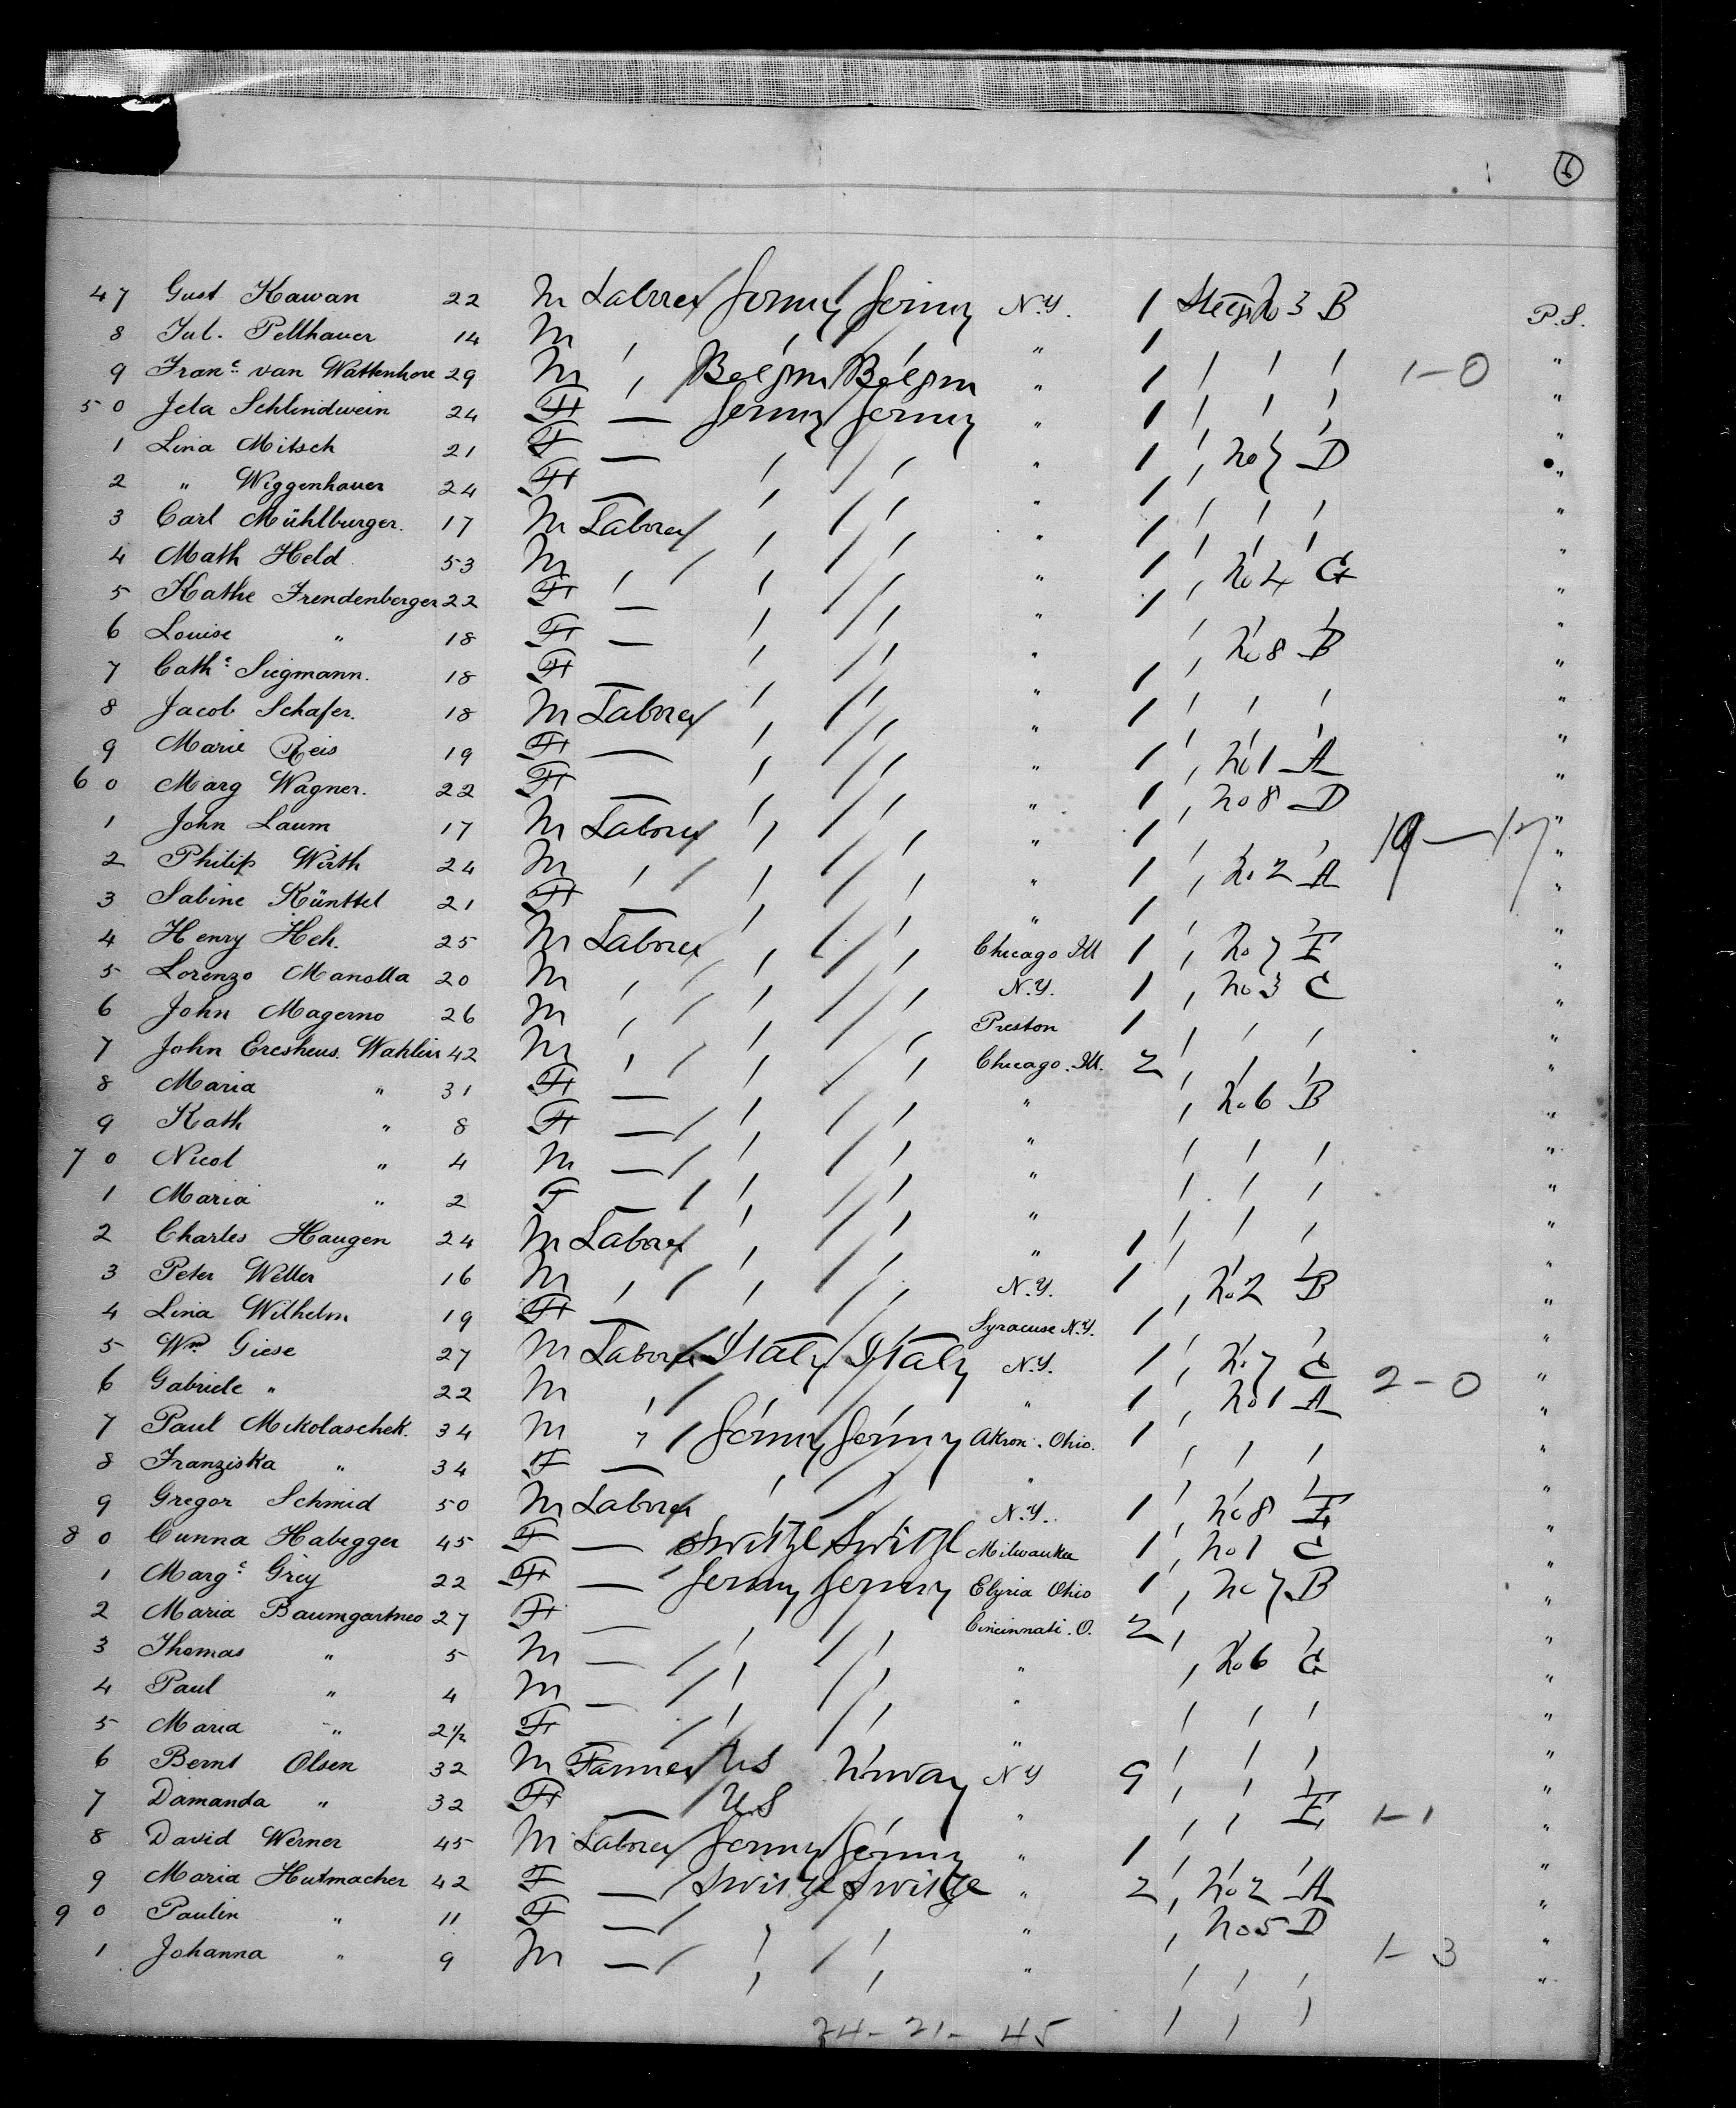 6
47 Gust Kawan 22 M Laborer Germy Germy N.Y. 1 Steeg No 3 B P.S.
8 Jul. Pellhauer 14 M " " " " 1 " " " "
9 Franc. van Wattenhove 29 M " Belgm Belgm " 1 " " " 1-0 "
50 Jela Schlindwein 24 F — Germy Germy " 1 " No 7 D "
1 Lina Mitsch 21 F — " " " 1 " " " "
2 " Wiggenhauer 24 F — " " " 1 " " " "
3 Carl Mühlburger. 17 M Laborer " " " 1 " No 4 C "
4 Math Held 53 M " " " " 1 " " " "
5 Kathe Frendenberger 22 F — " " " 1 " No 8 B "
6 Louise " 18 F — " " " " " " "
7 Cath. Siegmann. 18 F " " " 1 " " " "
8 Jacob Schafer. 18 M Laborer " " " 1 " No 1 A "
9 Marie Reis 19 F — " " " 1 " No 8 D "
60 Marg Wagner. 22 F — " " " 1 " " " "
1 John Laum 17 M Laborer " " " 1 " No 2 A 19-17 "
2 Philip Wirth 24 M " " " " 1 " " " "
3 Sabine Künttel 21 F — " " " 1 " No 7 E "
4 Henry Heh. 25 M Laborer " " Chicago Ill 1 " No 3 C "
5 Lorenzo Manolla 20 M " " " N.Y. 1 " " " "
6 John Magerno 26 M " " " Preston 1 " " " "
7 John Eresheus. Wahlin 42 M " " " Chicago. Ill. 2 " No 6 B "
8 Maria " 31 F — " " " " " " "
9 Kath " 8 F — " " " " " " "
70 Nicol " 4 M — " " " " " " "
1 Maria " 2 F " " " " " " "
2 Charles Haugen 24 M Laborer " " " 1 " No 2 B "
3 Peter Weller 16 M " " " N.Y. 1 " " " "
4 Lina Wilhelm 19 F — " " Syracuse N.Y. 1 " No 7 C "
5 Wm. Giese 27 M Laborer Italy Italy N.Y. 1 " No 1 A "
6 Gabriele " 22 M " " " " 1 " " " 2-0 "
7 Paul Mikolaschek. 34 M " Germy Germy Akron. Ohio. 1 " " " "
8 Franziska " 34 F — " " " " " " "
9 Gregor Schmid 50 M Laborer " " N.Y. 1 " No 8 E "
80 Cunna Habegger 45 F — Switzl Switzl Milwaukee 1 " No 1 C "
1 Marg. Grey 22 F — Germy Germy Elyria Ohio 1 " No 7 B "
2 Maria Baumgartner 27 F — " " Cincinnati. O. 2 " No 6 C "
3 Thomas " 5 M — " " " " " " "
4 Paul " 4 M — " " " " " " "
5 Maria " 2½ F " " " " " " "
6 Bernt Olsen 32 M Farmer US Norway N Y 9 " " E "
7 Damanda " 32 F U.S " 1-1 "
8 David Werner 45 M Laborer Germy Germy " 1 " No 2 A "
9 Maria Hutmacher 42 F — Switze Switze " 2 " No 5 D "
90 Paulin " 11 F — " " " " " " "
1 Johanna " 9 M — " " " " " " 1-3 "
24-21-45